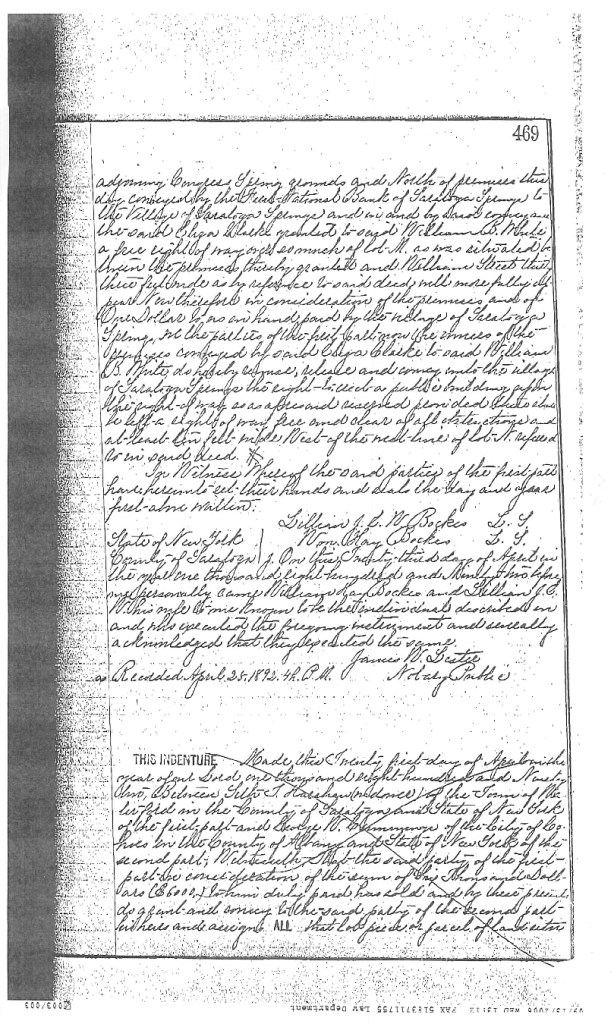 469
adjoining Congress Spring grounds and North of premises this
day conveyed by the First National Bank of Saratoga Springs to
the Village of Saratoga Springs and in and by said conveyance
the said Eliza Clarke granted to said William B. White
a free right of way over so much of lot M. as was situated be
tween the premises thereby granted and William Street thirty
three feet wide as by reference to said deed will more fully ap
pear Now therefore in consideration of the premises and of
One Dollar to us in hand paid by the village of Saratoga
Springs, We the parties of the first part now the owners of the
premises conveyed by said Eliza Clarke to said William
B. White, do hereby remise, release and convey unto the village
of Saratoga Springs the right to erect a public building upon
the right of way so as aforesaid reserved provided there shall
be left a right of way free and clear of all obstructions and
at least ten feet wide West of the west line of lot N. referred
to in said deed.
In Witness Whereof the said parties of the first part
have hereunto set their hands and seals the day and year
first above written.
Lillian J. C. W. Bockes L. S.
State of New York Wm. Hay Bockes L. S.
County of Saratoga On this Twenty third day of April in
the year one thousand eight hundred and Ninety two before
me personally came William Hay Bockes and Lillian J. C.
W. his wife to me known to be the individuals described in
and who executed the foregoing instrument and severally
acknowledged that they executed the same.
James W. Lester
Recorded April 25. 1892. 4h. P.M. Notary Public
THIS INDENTURE Made this Twenty first day of April in the
year of our Lord one thousand eight hundred and Ninety
two, Between T. (widower) of the Town of Wa
terford in the County of Saratoga and State of New York
of the first part and George W. Cummings of the City of Co
hoes in the County of Albany and State of New York of the
second part, Witnesseth, That the said party of the first
part in consideration of the sum of Six Thousand Doll
ars ($6000.) to him duly paid has sold and by these presents
do grant and convey to the said party of the second part
heirs and assigns ALL that lot piece or parcel of land situa
003/003 WED 13:12 FAX 5183711755 Law Department